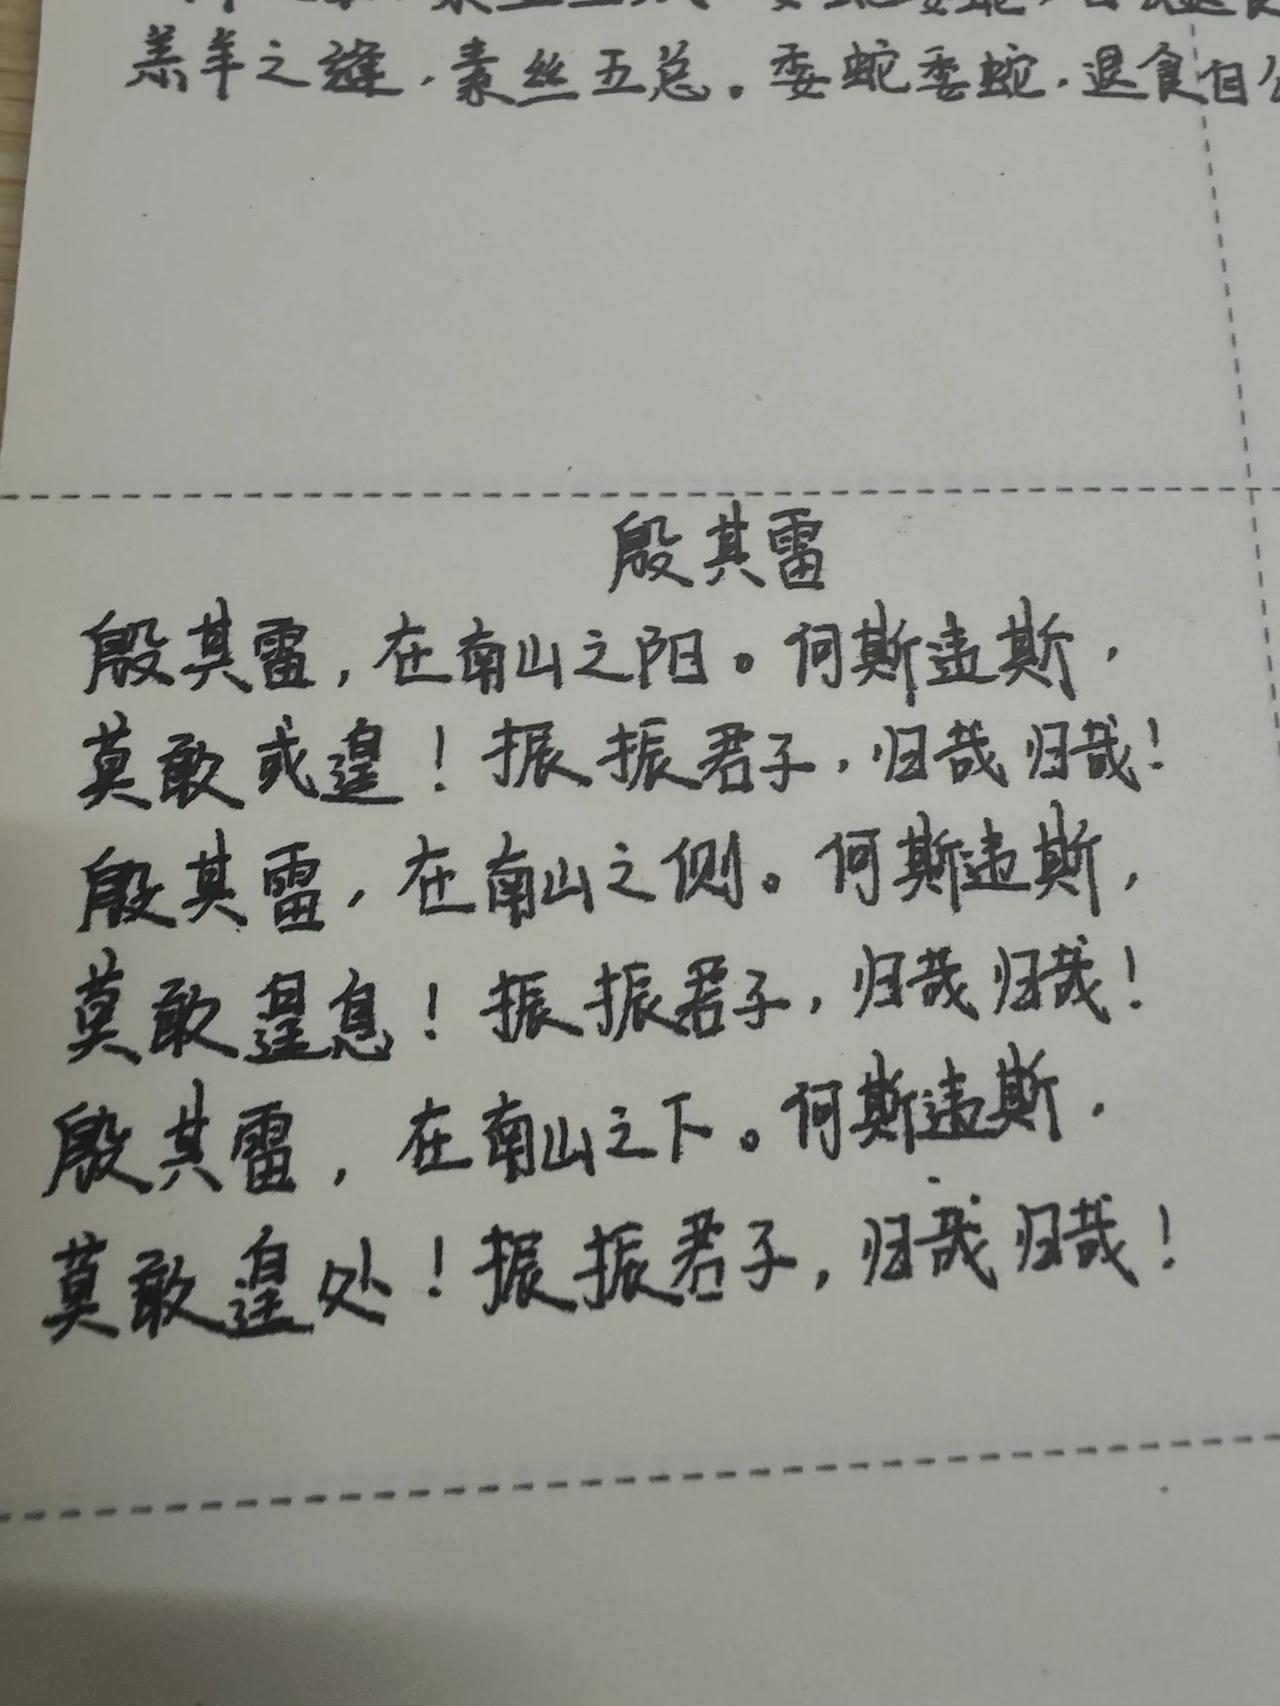 羔羊之缝，素丝五总。委蛇委蛇，退食自公
殷其雷
殷其雷，在南山之阳。何斯违斯，
莫敢或遑！振振君子，归哉归哉！
殷其雷，在南山之侧。何斯违斯，
莫敢遑息！振振君子，归哉归哉！
殷其雷，在南山之下。何斯违斯，
莫敢遑处！振振君子，归哉归哉！